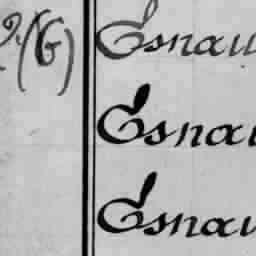 (G) Esnau
Esnau
Esnau